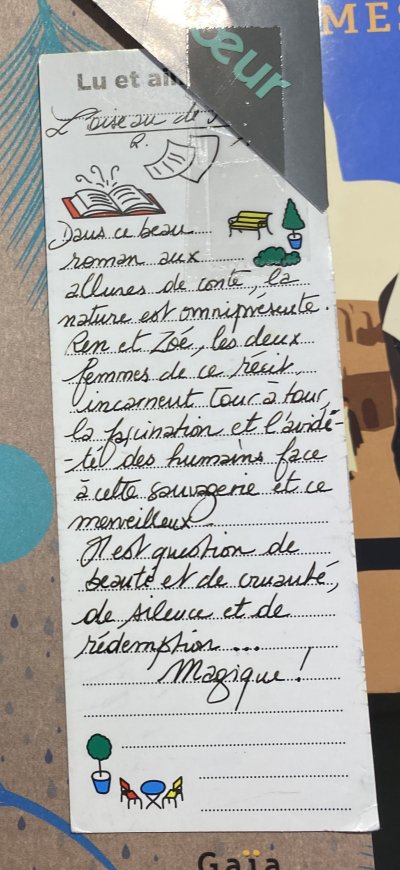 cœur
MES
Lu et ai
L'oiseau de
R.
Dans ce beau
roman aux
allures de conte, la
nature est omniprésente.
Ren et Zoé, les deux
femmes de ce récit,
incarnent tour à tour,
la fascination et l'avidi-
-té des humains face
à cette sauvagerie et ce
merveilleux.
Il est question de
beauté et de cruauté,
de silence et de
rédemption...
Magique !
Gaïa